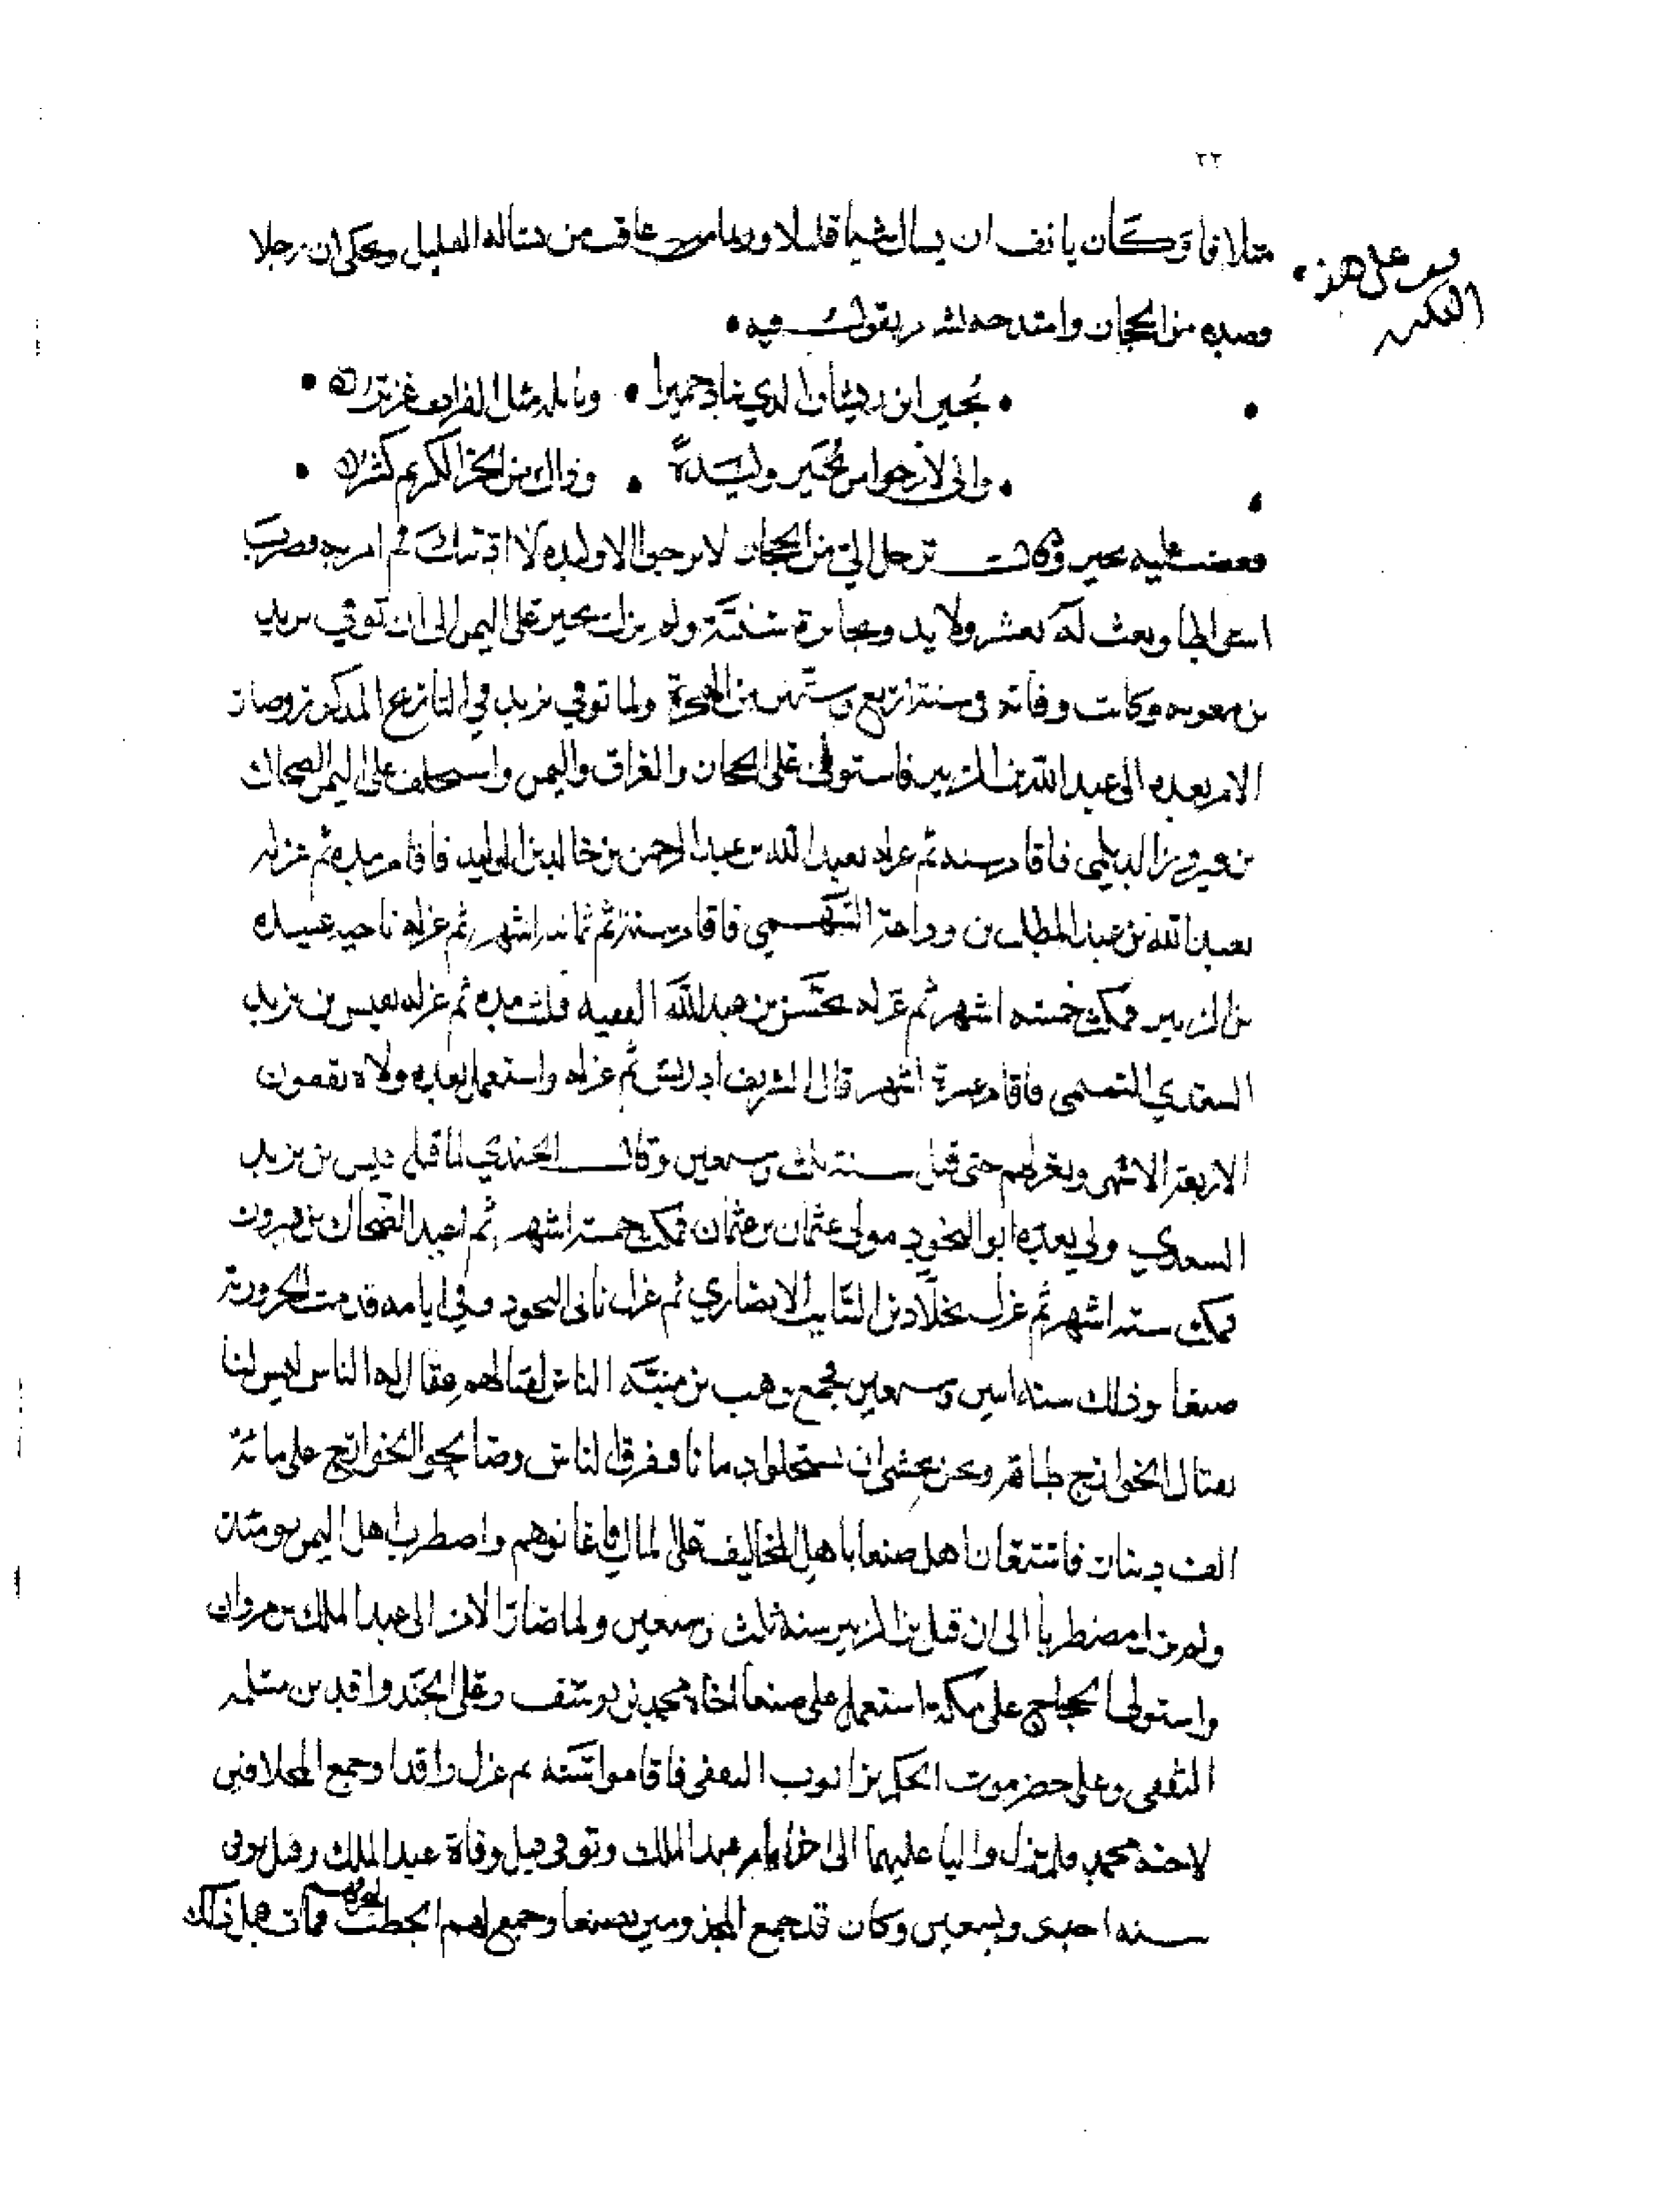 ٢٢
متلافا وكان يانف ان يسال شيا قليلا وربما عاقب من يساله القليل ويحكى ان رجلا
قصده من الحجاز وامتدحه بشعر يقول فيه
بحير ابن ريشان الذي ساد حميرا ونايله مثل الفرات غزير
واني لارجوا من بحير وليدة وذاك من الحر الكريم كثير
فغضب عليه بحير وقال ترحل الي من الحجاز لا ترجوا الا وليده لاادبنك ثم امر به فضرب
اسواطا وبعث له بعشر ولايد وجايزة سنية ولم يزل بحير على اليمن الى ان توفي يزيد
بن معويه وكانت وفاته في سنة اربع وستين من الهجرة ولما توفي يزيد في التاريخ المذكور وصار
الامر بعده الى عبد الله بن الزبير فاستولى على الحجاز والعراق واليمن واستخلف على اليمن الضحاك
بن فيروز الديلمي فاقام سنه ثم عزله بعبد الله بن عبد الرحمن بن خالد بن الوليد فاقام مده ثم عزله
بعبد الله بن عبد المطلب بن وداعة السهمي فاقام سنة ثم ثمانيه اشهر ثم عزله باخيه عبيده
بن الزبير فمكث خمسه اشهر ثم عزله بحنش بن عبد الله الفقيه فلبث مده ثم عزله بقيس بن يزيد
السعدي التميمي فاقام عشرة اشهر قال الشريف ادريس ثم عزله واستعمل بعده ولاه يقيمون
الاربعة الاشهر ويعزلهم حتى قتل سنة ثلث وسبعين وقال الجندي لما قتل قيس بن يزيد
السعدي ولي بعده ابو النجود مولى عثمان بن عفان فمكث خمسة اشهر ثم اعيد الضحاك بن فيروز
فمكث سته اشهر ثم عزل بخلاد بن السايب الانصاري ثم عزل بابي النجود وفي ايامه قدمت الحرورية
صنعا وذلك سنه اثنين وسبعين فجمع وهب بن منبه الناس لقتالهم فقال له الناس ليس لنا
بقتال الخوارج طاقة ونحن نخشى ان يستحلوا دمانا وصالحوا الخوارج على مائة
الف دينار فاستعان اهل صنعا باهل المخاليف على المال فاعانوهم واضطرب اهل اليمن يومئذ
ولم يزل مضطربا الى ان قتل بن الزبير سنة ثلث وسبعين ولما صار الامر الى عبد الملك بن مروان
واستولى الحجاج على مكة استعمل على صنعا اخاه محمد بن يوسف وعلى الجند واقد بن سلمه
الثقفي وعلى حضرموت الحكم بن ايوب الثقفي فاقاموا سنه ثم عزل واقدا وجمع المخلافين
لاخيه محمد فلم يزل واليا عليهما الى اخر ايام عبد الملك وتوفي قبل وفاة عبد الملك وقيل توفي
سنه احدى وتسعين وكان قد جمع المجذومين بصنعا وجمع لهم الحطب ليحرقهم فمات قبل ذلك